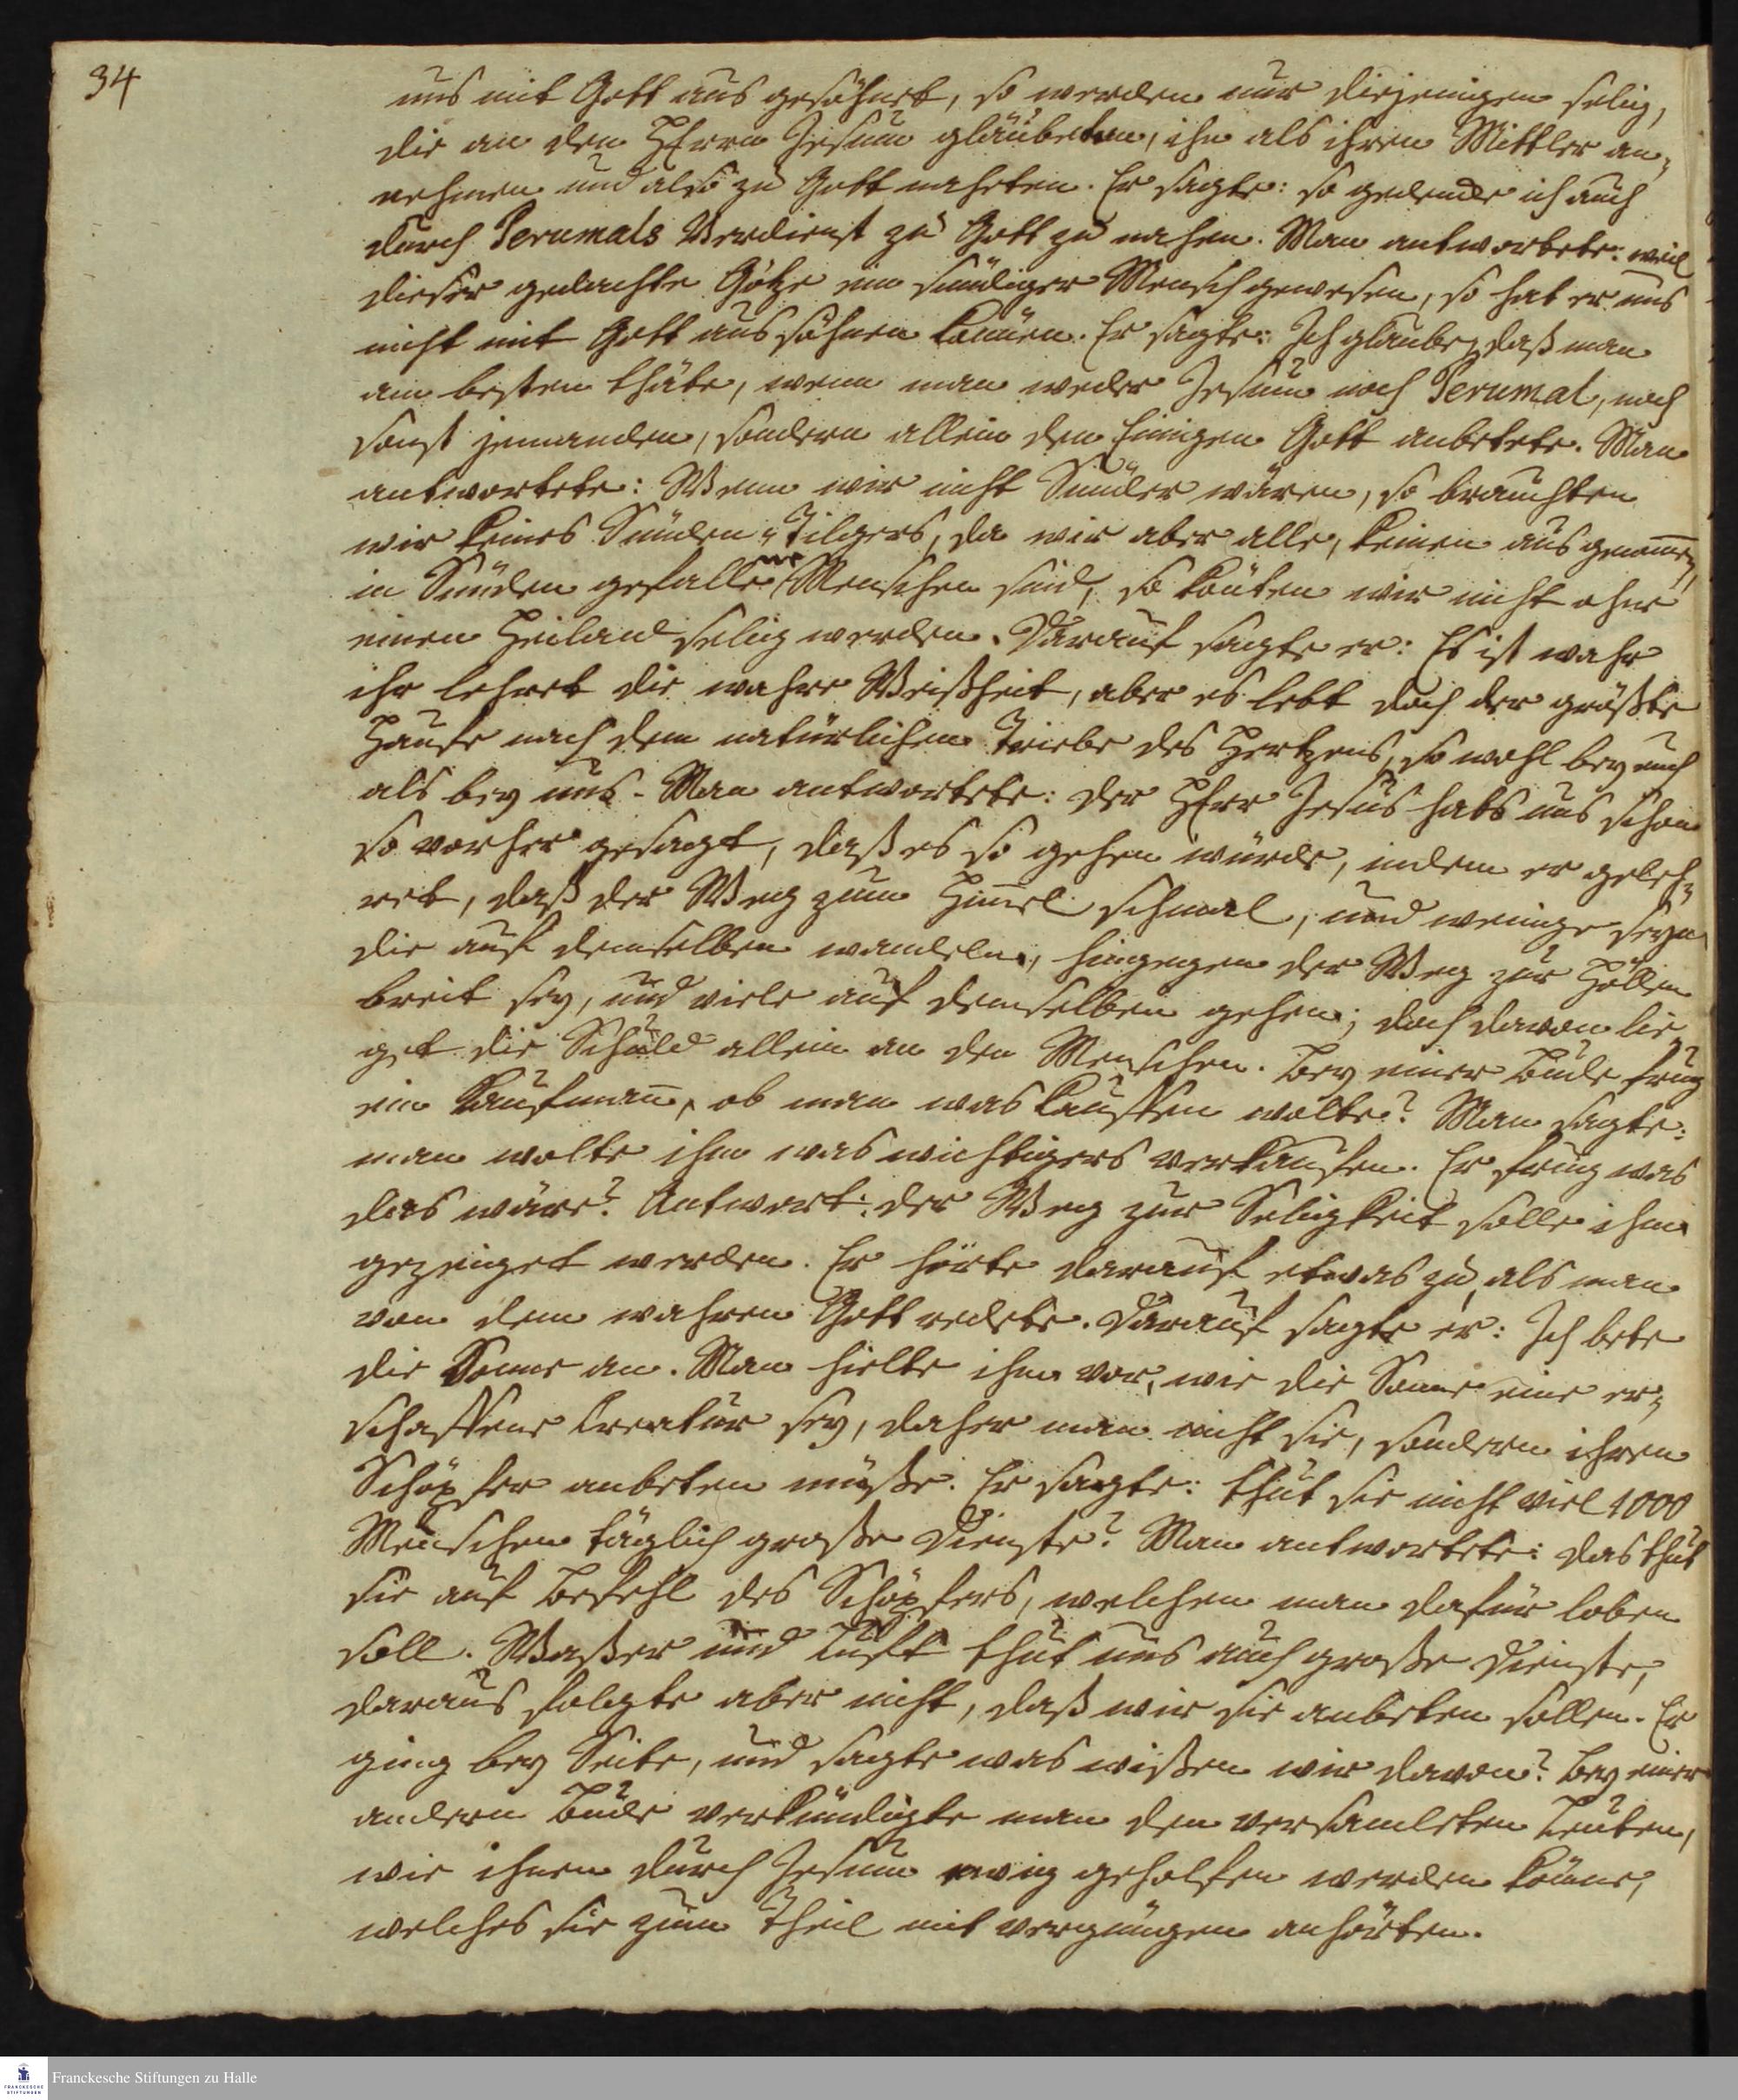 34
uns mit Gott ausgesöhnet, so werden nur diejenigen selig,
die an den HErrn Jesum gläubeten, ihn als ihren Mittler an-
nehmen und also zu Gott naheten. Er sagte: so gedencke ich auch
durch Perumals Verdienst zu Gott zu nahen. Man antwortete: weil
dieser gedachte Götze ein sündiger Mensch gewesen, so hat er uns
nicht mit Gott aussöhnen können. Er sagte: Ich glaube, daß man
am besten thäte, wenn man weder Jesum noch Perumal, noch
sonst jemanden, sondern allein den Einigen Gott anbetete. Man
antwortete: Wenn wir nicht Sünder wären, so brauchten
wir keines Sünden-Tilgers, da wir aber alle, keinen ausgenom̅en,
in Sünden gefallene Menschen sind, so könten wir nicht ohne
einen Heiland selig werden. Darauf sagte er: Es ist wahr
ihr lehret die wahre Weißheit, aber es lebt doch der größte
Haufe nach dem natürlichen Triebe des Hertzens, so wohl bey euch
als bey uns. Man antwortete: der HErr Jesus habs uns schon
so vorher gesagt, daß es so gehen würde, indem er geleh-
ret, daß der Weg zum Him̅el schmal, und wenige seyn
die auf demselben wandeln, hingegen der Weg zur Höllen
breit sey, und viele auf demselben gehen; doch davon lie-
get die Schuld allein an den Menschen. Bey einer Bude frug
ein Kaufman̅, ob man was kauffen wolte? Man sagte:
man wolte ihm was wichtigers verkaufen. Er frug was
das wäre? Antwort: der Weg zur Seligkeit solle ihm
gezeiget werden. Er hörte darauf etwas zu, als man
von dem wahren Gott redete. Darauf sagte er: Ich bete
die Sonne an. Man hielte ihm vor, wie die Sonne eine er-
schaffene Creatur sey, daher man nicht sie, sondern ihren
Schöpfer anbeten müße. Er sagte: thut sie nicht viel 1000
Menschen täglich große Dienste? Man antwortete: das thut
sie auf Befehl des Schöpfers, welchen man dafür loben
soll. Waßer und Luft thut uns auch große Dienste,
daraus folgte aber nicht, daß wir sie anbeten sollen. Er
ging bey Seite, und sagte was wißen wir davon? Bey einer
andern Bude verkündigte man den versamleten Leuten,
wie ihnen durch Jesum ewig geholfen werden könne,
welches sie zum Theil mit vergnügen anhörten.
Franckesche Stiftungen zu Halle
FRANCKESCHE STIFTUNGEN